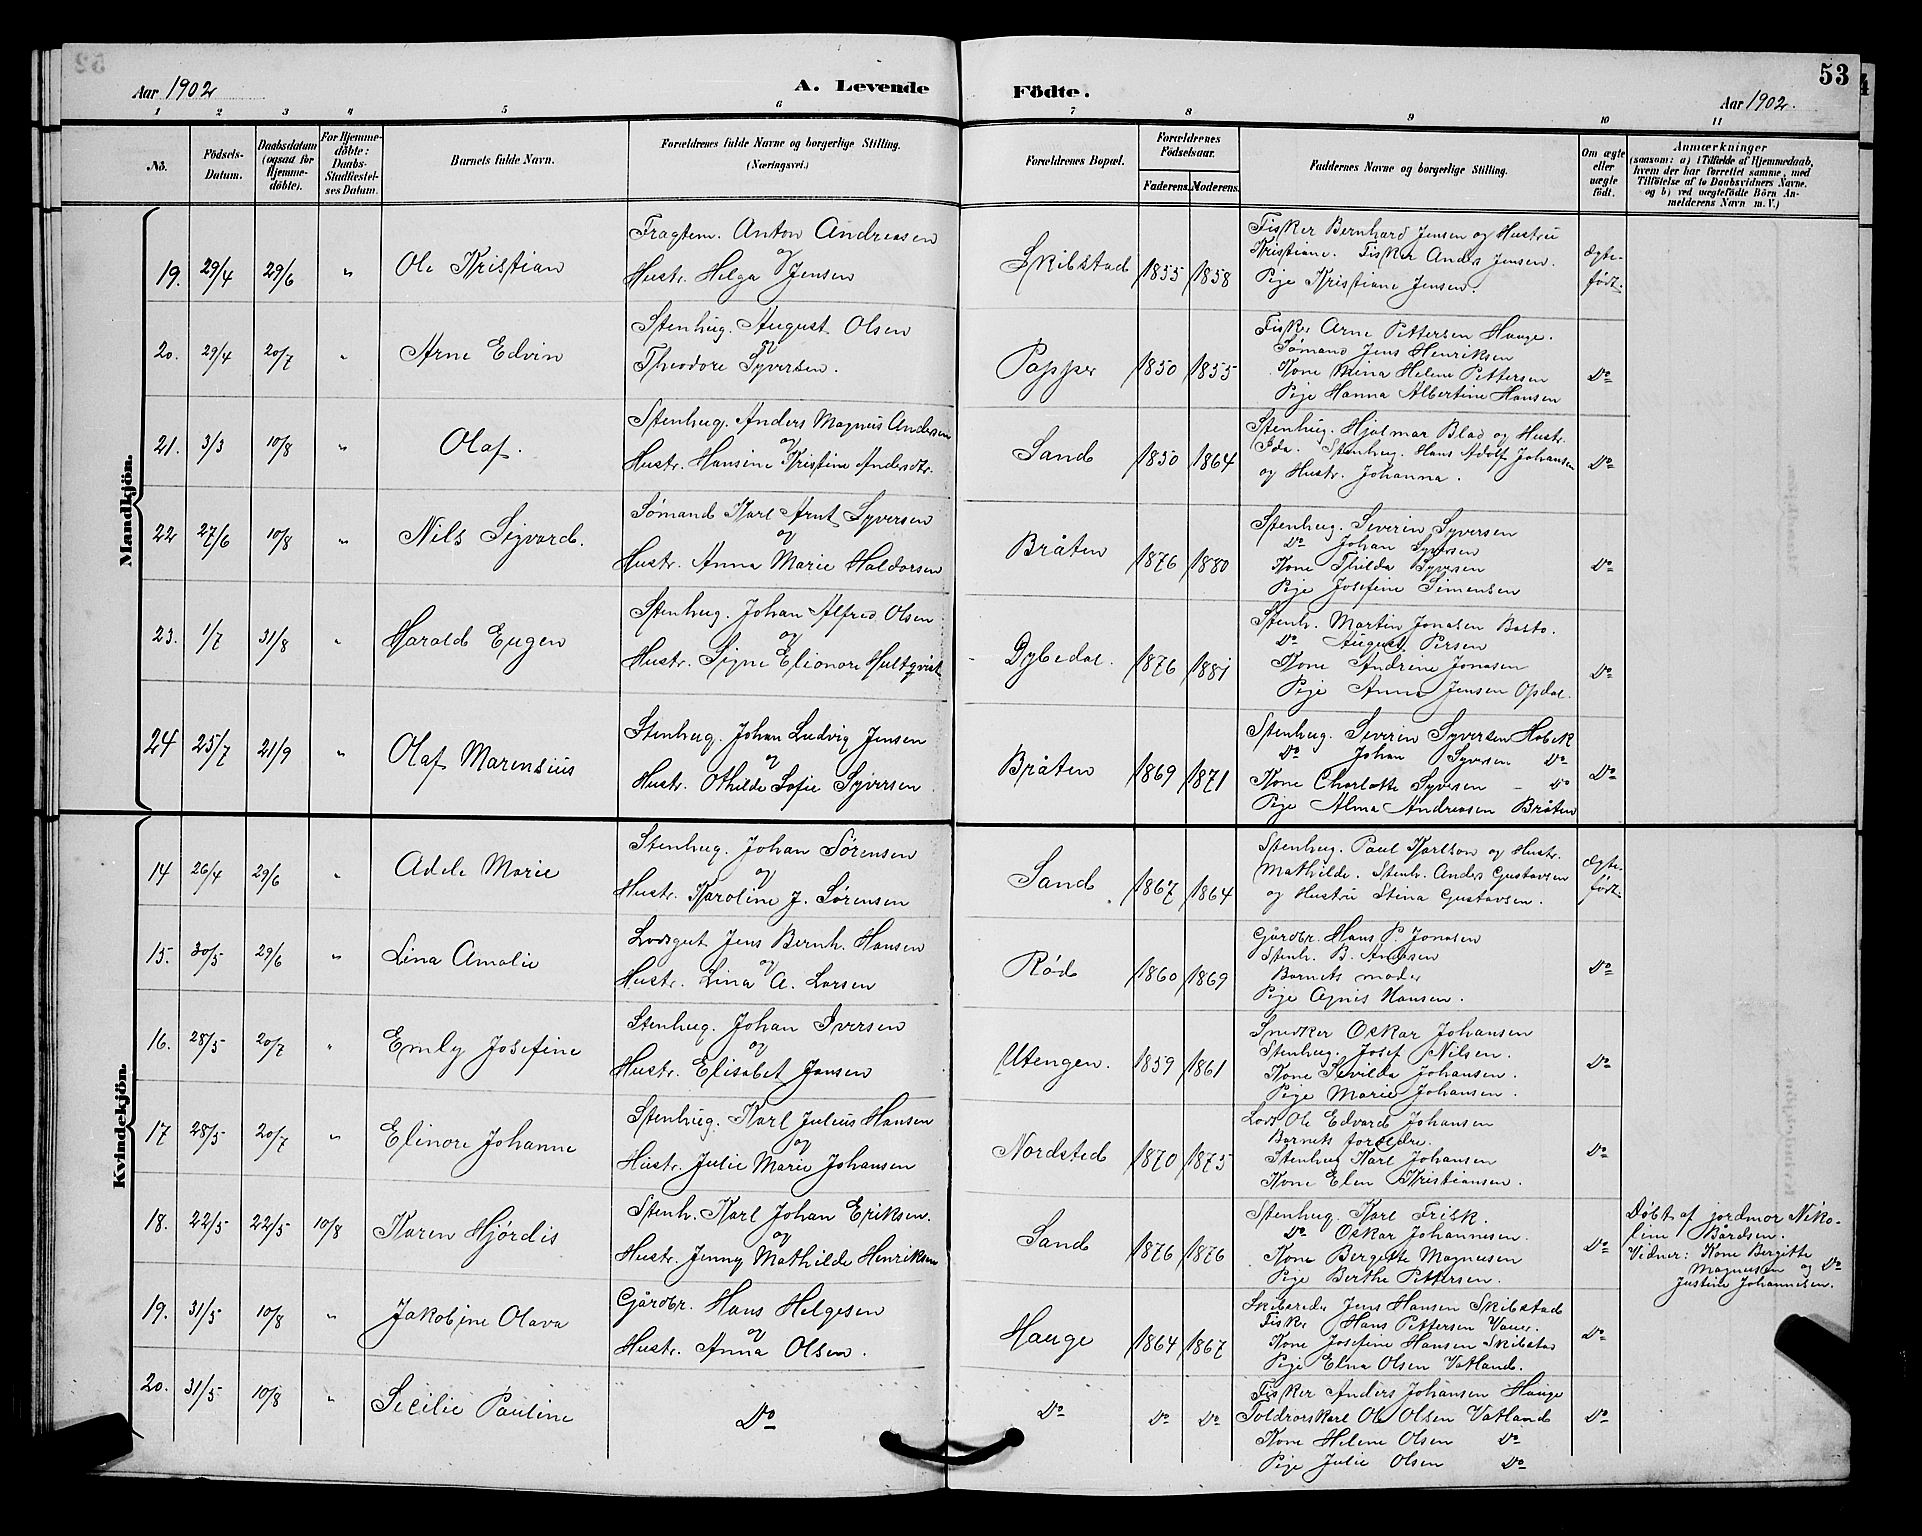 53
Aar 1902
A. Levende Födte.
Aar 1902.
1 2 3 4 5 6 7 8 9 10 11
No.
Födsels-Datum.
Daabsdatum (ogsaa for Hjemmedöbte).
For Hjemmedöbte: Daabs-Stadfæstelses Datum.
Barnets fulde Navn.
Forældrenes fulde Navne og borgerlige Stilling. (Næringsvei.)
Forældrenes Bopæl.
Forældrenes Födselsaar.
Faderens. Moderens.
Faddernes Navne og borgerlige Stilling.
Om ægte eller uægte födt.
Anmærkninger
(saasom: a) i Tilfælde af Hjemmedaab, hvem der har forrettet samme, med Tilföielse af to Daabsvidners Navne, og b) ved uægtefödte Börn Anmelderens Navn m. V.)
Mandkjön.
19. 29/4 29/6 " Ole Kristian
Fragtem. Anton Andreasen
og
Hustr. Helga Jensen
Skibstad 1855 1858
Fisker Bernhard Jensen og Hustru
Kristiane. Fisker Anders Jensen.
Pige Kristiane Jensen.
Ægte-
født.
20. 29/4 20/7 " Arne Edvin
Stenhug. August Olsen
og
Theodore Syversen.
Papper 1850 1855
Fisker Arne Pettersen Hauge.
Sømand Jens Henriksen
Kone Mina Helene Pettersen
Pige Hanna Albertine Hansen
Do
21. 3/3 10/8 " Olaf.
Stenhug. Anders Magnus Andersen
og
Hustr. Hansine Kristine Andersdtr.
Sand 1850 1864
Stenhug. Hjalmar Blad og Hustr.
Ida. Stenhug. Hans Adolf Johansen
og Hustr. Johanna.
Do
22 27/6 10/8 " Nils Sigvard.
Sømand Karl Arnt Syversen
og
Hustr. Anna Marie Haldorsen
Bråten 1876 1880
Stenhug. Severin Syversen
Do Johan Syversen
Kone Thilda Syversen
Pige Josefine Simensen
Do
23. 1/7 31/8 " Harald Eugen
Stenhug. Johan Alfred Olsen
og
Hustr. Signe Elionore Hultqvist
Dybedal. 1876 1881
Stenh. Martin Jonasen Basto.
Do August Persen
Kone Andrine Jonasen
Pige Anna Jensen Opdal.
Do
24 25/7 21/9 " Olaf Marensius
Stenhug. Johan Ludvig Jensen
og
Hustr. Othilde Sofie Syversen
Bråten 1869 1871
Stenhug. Severin Syversen Habek
Do Johan Syversen Do
Kone Charlotte Syversen - Do
Pige Alma Andreasen Bråten
Do
Kvindekjön.
14 26/4 29/6 " Adele Marie
Stenhug. Johan Sörensen
og
Hustr. Karoline J. Sørensen
Sand 1867 1864
Stenhug. Paul Karlson og Hustr.
Mathilde. Stenh. Anders Gustavsen
og Hustru Stina Gustavsen.
Ægte-
født.
15. 30/5 29/6 " Lina Amalie
Lodsgut Jens Bernh. Hansen
og
Hustr. Lina A. Larsen
Rød 1860 1869
Gårdbr. Hans P. Jonasen
Stenh. B. Andersen
Barnets moder
Pige Agnes Hansen.
Do
16. 28/5 20/7 " Emly Josefine
Stenhug. Johan Iversen
og
Hustr. Elisabet Jansen
Utengen. 1859 1861
Snedker Oskar Johansen
Stenhug. Josef Nilsen.
Kone Sevilda Johansen.
Pige Marie Johansen.
Do
17 28/5 20/7 " Elinore Johanne
Stenhug. Karl Julius Hansen
og
Hustr. Julie Marie Johansen
Nordsted 1870 1875
Lods Ole Edvard Johansen
Barnets forældre.
Stenhug Karl Johansen
Kone Elen Kristiansen.
Do
18. 22/5 22/5 10/8 Karen Hjørdis
Stenh. Karl Johan Eriksen.
og
Hustr. Jenny Mathilde Henriksen
Sand 1876 1876
Stenhug. Karl Frisk.
Do Oskar Johannesen.
Kone Bergitte Magnusen
Pige Berthe Pettersen.
Do
Døbt af jordmor Niko-
line Bårdsen.
Vidner: Kone Bergitte
Magnusen og Do
Justine Johannesen.
19. 31/5 10/8 " Jakobine Olava
Gårdbr. Hans Helgesen
og
Hustr. Anna Olsen.
Hauge 1864 1867
Skibsreder Jens Hansen Skibstad
Fisker Hans Pettersen Vauer.
Kone Josefine Hansen Skibstad
Pige Elna Olsen Vatland.
Do
20. 31/5 10/8 " Secilie Pauline
Do
Do Do Do
Fisker Anders Johansen Hauge
Toldrorskarl Ole Olsen Vatland
Kone Helene Olsen Do
Pige Julie Olsen Do
Do